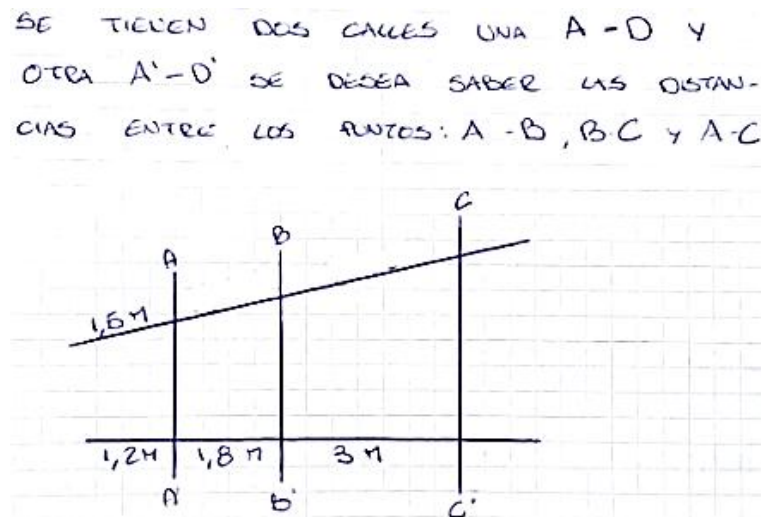 SE TIENEN DOS CALLES UNA A-D Y
OTRA A'-D' SE DESEA SABER LAS DISTAN-
CIAS ENTRE LOS PUNTOS: A-B, B-C Y A-C
C
B
A
1,5 M
1,2 M 1,8 M 3 M
A' B' C'